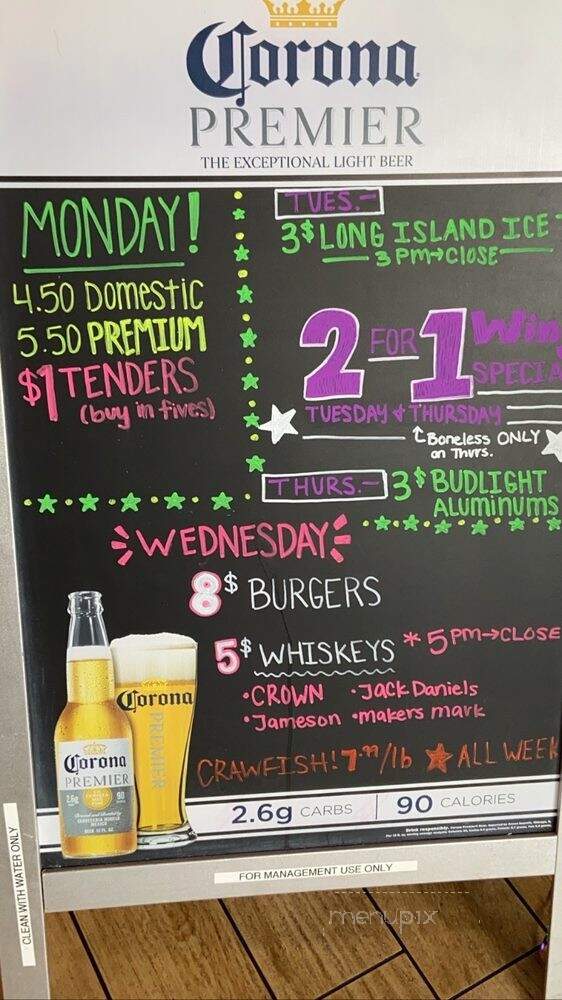 Corona
PREMIER
THE EXCEPTIONAL LIGHT BEER
MONDAY!
4.50 Domestic
5.50 PREMIUM
$1 TENDERS
(buy in fives)
TUES.-
3$ LONG ISLAND ICE
3 PM→CLOSE
2 FOR 1 Win
SPECIA
TUESDAY & THURSDAY
Boneless ONLY
on Thurs.
THURS.- 3$ BUDLIGHT
ALuminums
WEDNESDAY
8$ BURGERS
5$ WHISKEYS * 5 PM→CLOSE
•CROWN •Jack Daniels
•Jameson •makers mark
CRAWFISH! 7.99/lb ALL WEEK
Corona
PREMIER
Corona
PREMIER
2.6g
90
2.6g CARBS | 90 CALORIES
Drink responsibly.
FOR MANAGEMENT USE ONLY
CLEAN WITH WATER ONLY
menupix